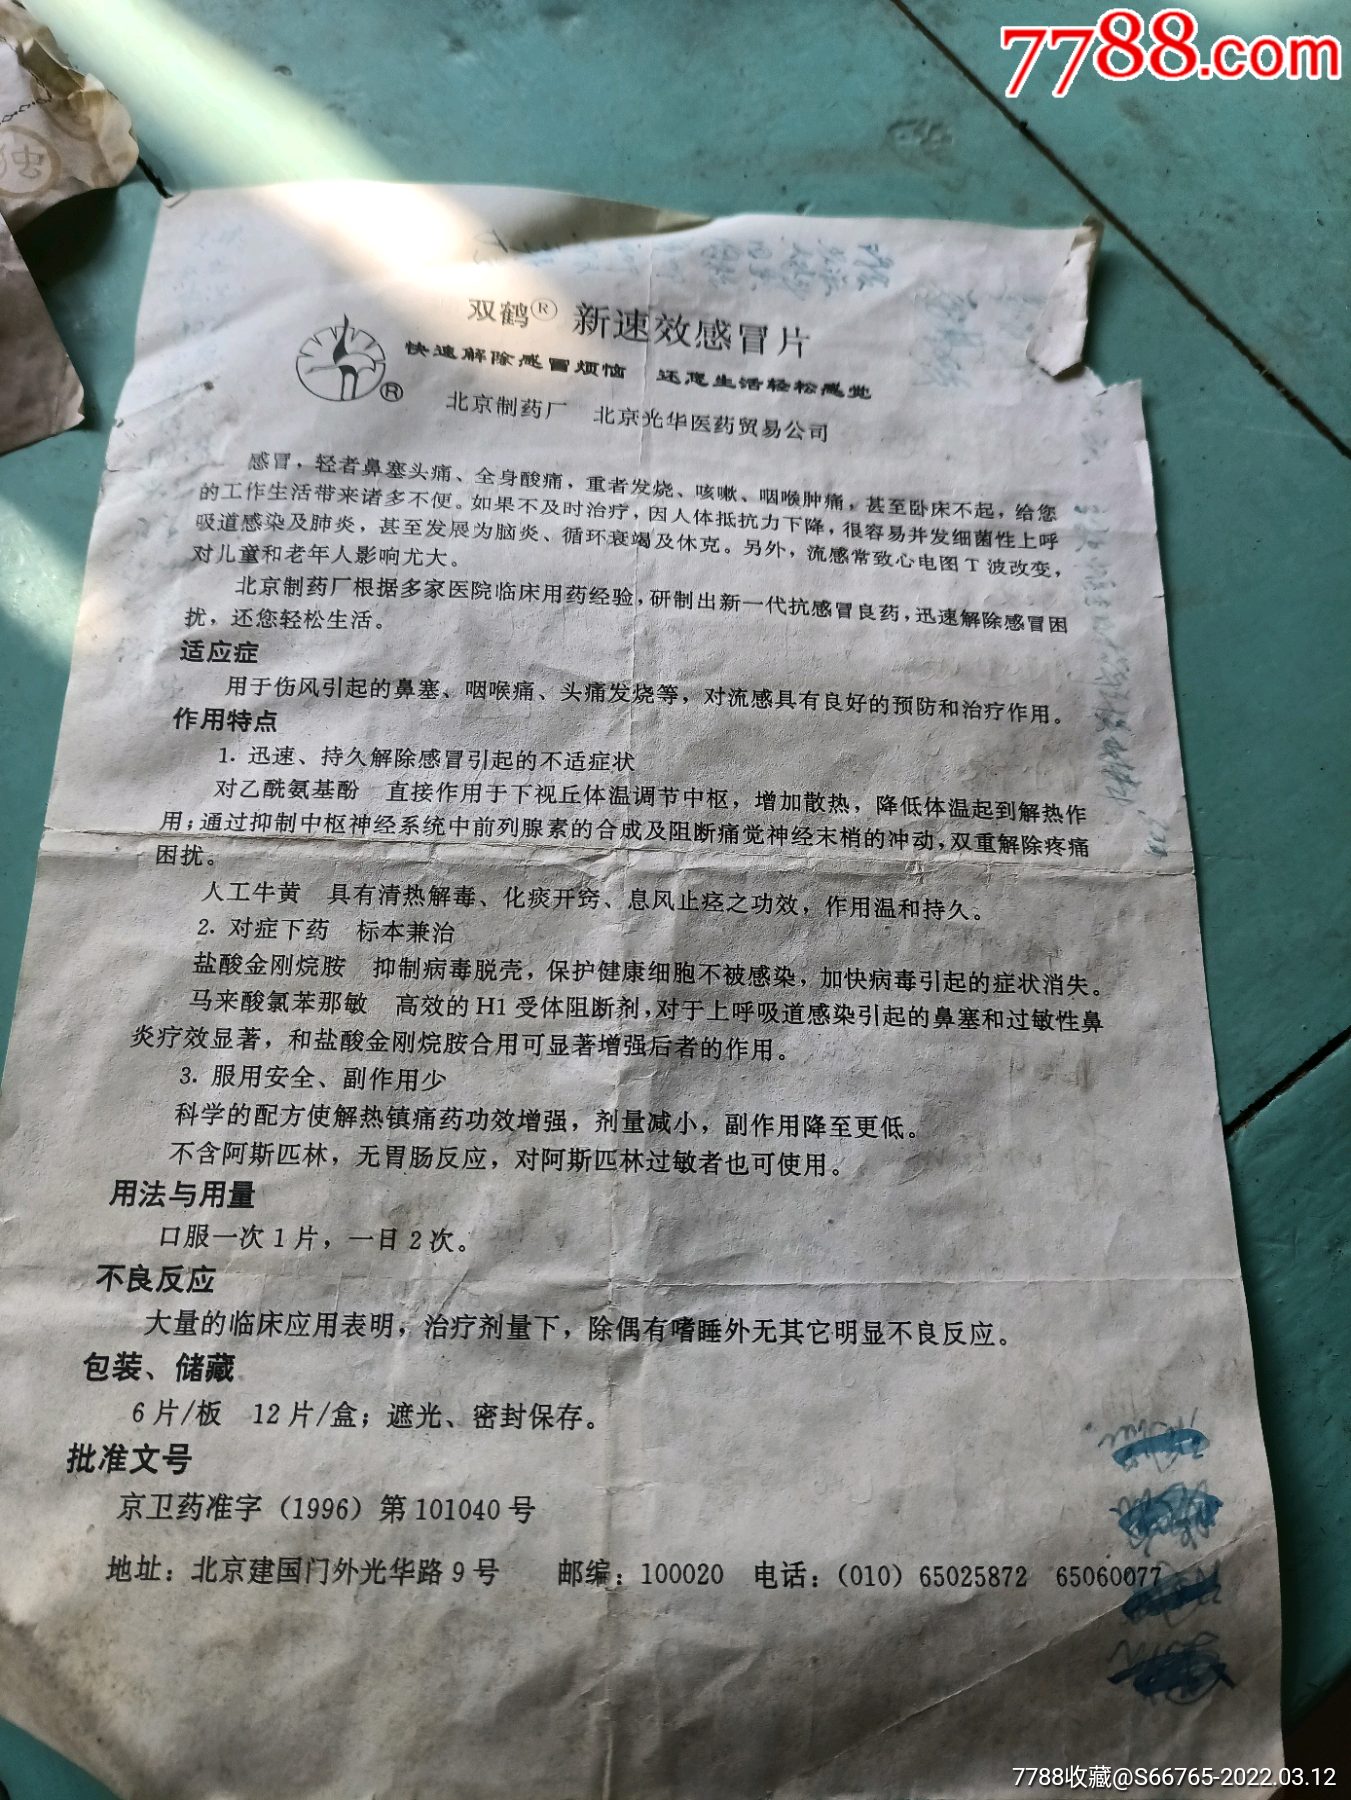 7788.com
双鹤® 新速效感冒片
快速解除感冒烦恼 还您生活轻松感觉
®
北京制药厂 北京光华医药贸易公司
感冒，轻者鼻塞头痛、全身酸痛，重者发烧、咳嗽、咽喉肿痛，甚至卧床不起，给您
的工作生活带来诸多不便。如果不及时治疗，因人体抵抗力下降，很容易并发细菌性上呼
吸道感染及肺炎，甚至发展为脑炎、循环衰竭及休克。另外，流感常致心电图T波改变，
对儿童和老年人影响尤大。
北京制药厂根据多家医院临床用药经验，研制出新一代抗感冒良药，迅速解除感冒困
扰，还您轻松生活。
适应症
用于伤风引起的鼻塞、咽喉痛、头痛发烧等，对流感具有良好的预防和治疗作用。
作用特点
1. 迅速、持久解除感冒引起的不适症状
对乙酰氨基酚 直接作用于下视丘体温调节中枢，增加散热，降低体温起到解热作
用；通过抑制中枢神经系统中前列腺素的合成及阻断痛觉神经末梢的冲动，双重解除疼痛
困扰。
人工牛黄 具有清热解毒、化痰开窍、息风止痉之功效，作用温和持久。
2. 对症下药 标本兼治
盐酸金刚烷胺 抑制病毒脱壳，保护健康细胞不被感染，加快病毒引起的症状消失。
马来酸氯苯那敏 高效的H1受体阻断剂，对于上呼吸道感染引起的鼻塞和过敏性鼻
炎疗效显著，和盐酸金刚烷胺合用可显著增强后者的作用。
3. 服用安全、副作用少
科学的配方使解热镇痛药功效增强，剂量减小，副作用降至更低。
不含阿斯匹林，无胃肠反应，对阿斯匹林过敏者也可使用。
用法与用量
口服一次1片，一日2次。
不良反应
大量的临床应用表明，治疗剂量下，除偶有嗜睡外无其它明显不良反应。
包装、储藏
6片/板 12片/盒；遮光、密封保存。
批准文号
京卫药准字（1996）第101040号
地址：北京建国门外光华路9号 邮编：100020 电话：（010）65025872 65060077
7788收藏@S66765-2022.03.12